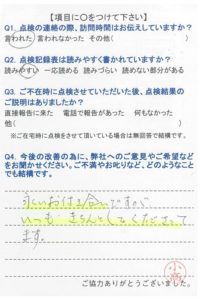 【項目に○をつけて下さい】
Q1. 点検の連絡の際、訪問時間はお伝えしていますか?
言われた 言われなかった その他( )
Q2. 点検記録表は読みやすく書かれていますか?
読みやすい 一応読める 読みづらい 読めない部分がある
Q3. ご不在時に点検させていただいた後、点検結果の
ご説明はありましたか?
直接報告に来た 電話で報告があった 何もなかった
他( )
※ご在宅時に点検させて頂いている場合は無回答で結構です。
Q4. 今後の改善の為に、弊社へのご意見やご希望など
をお聞かせください。ご不満やお叱りなど、どのようなこと
でも結構です。
永いお付き合いですが
いつも きちんとしてくださって
ます。
ご協力ありがとうございました。